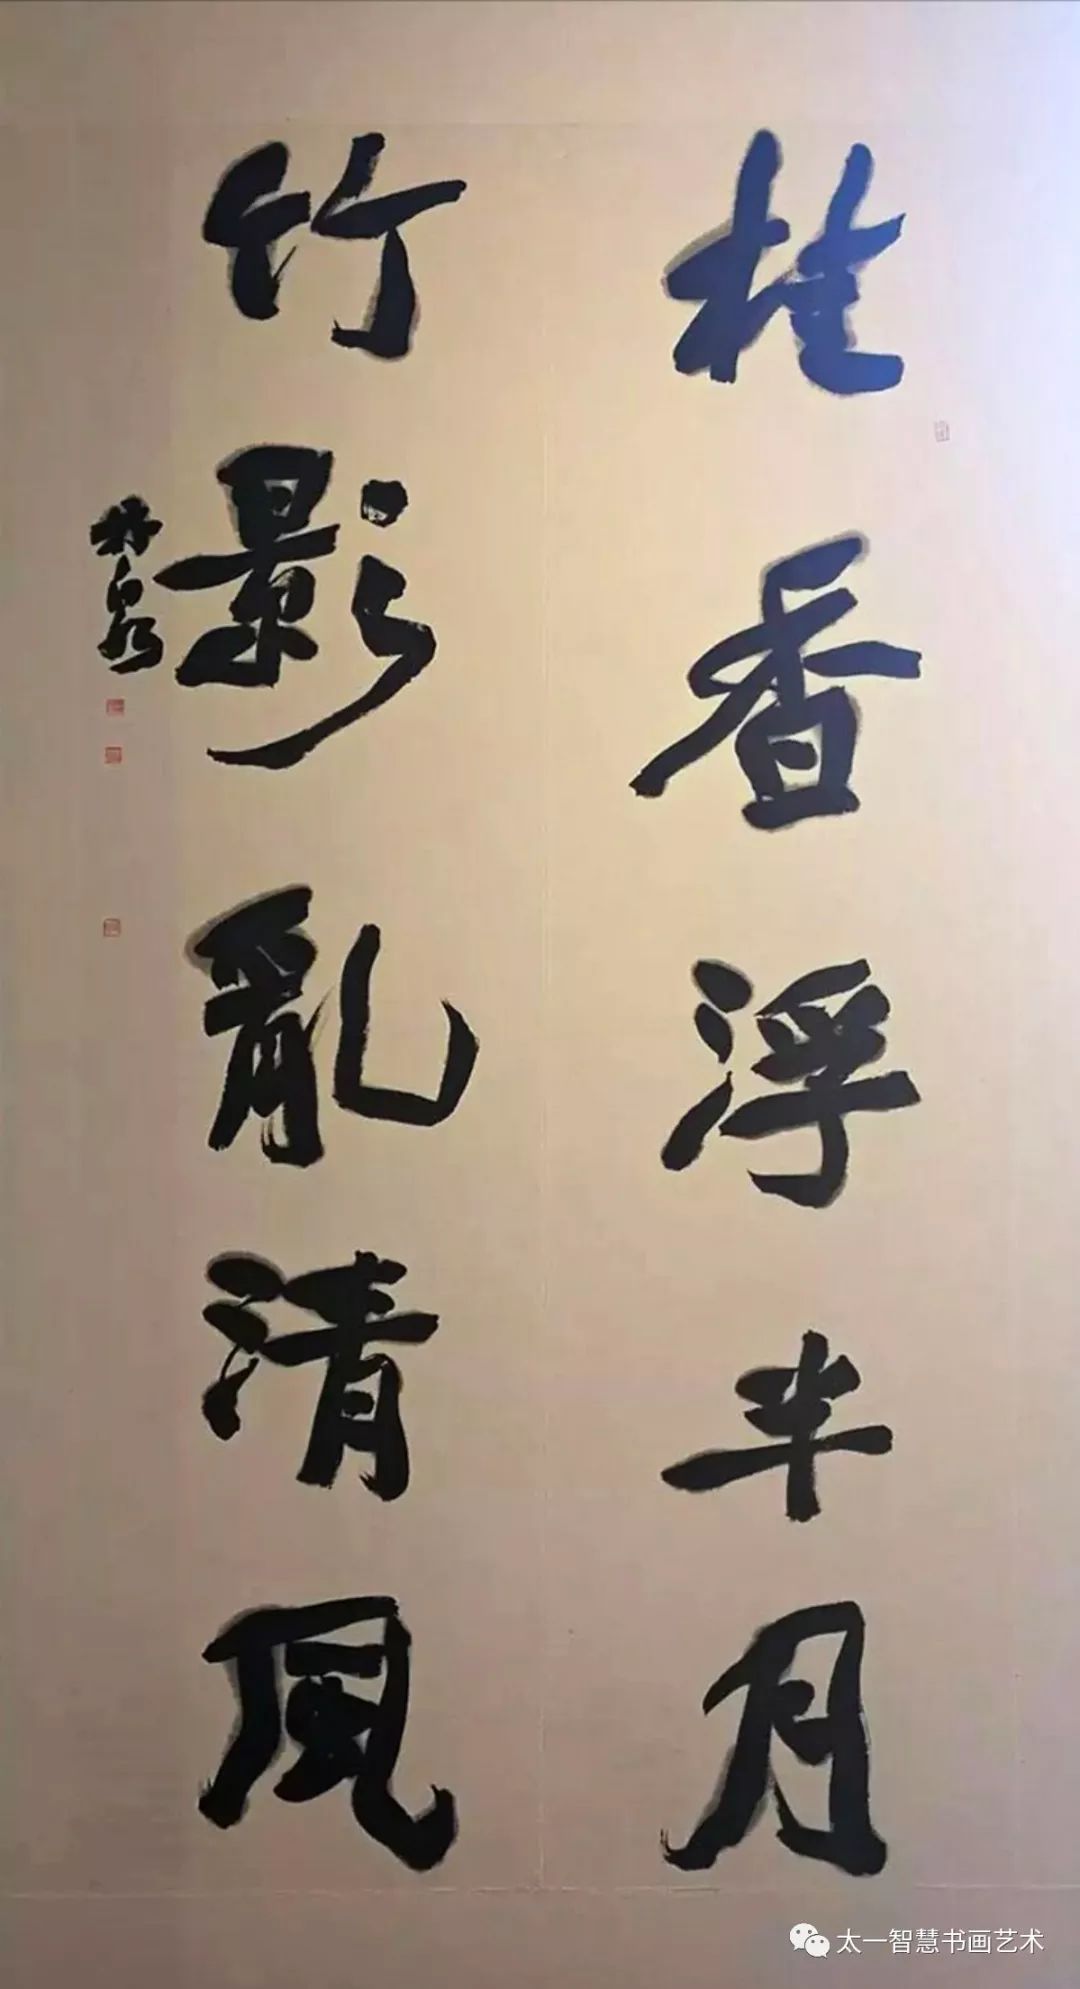 桂香浮半月
竹影亂清風
太一智慧书画艺术